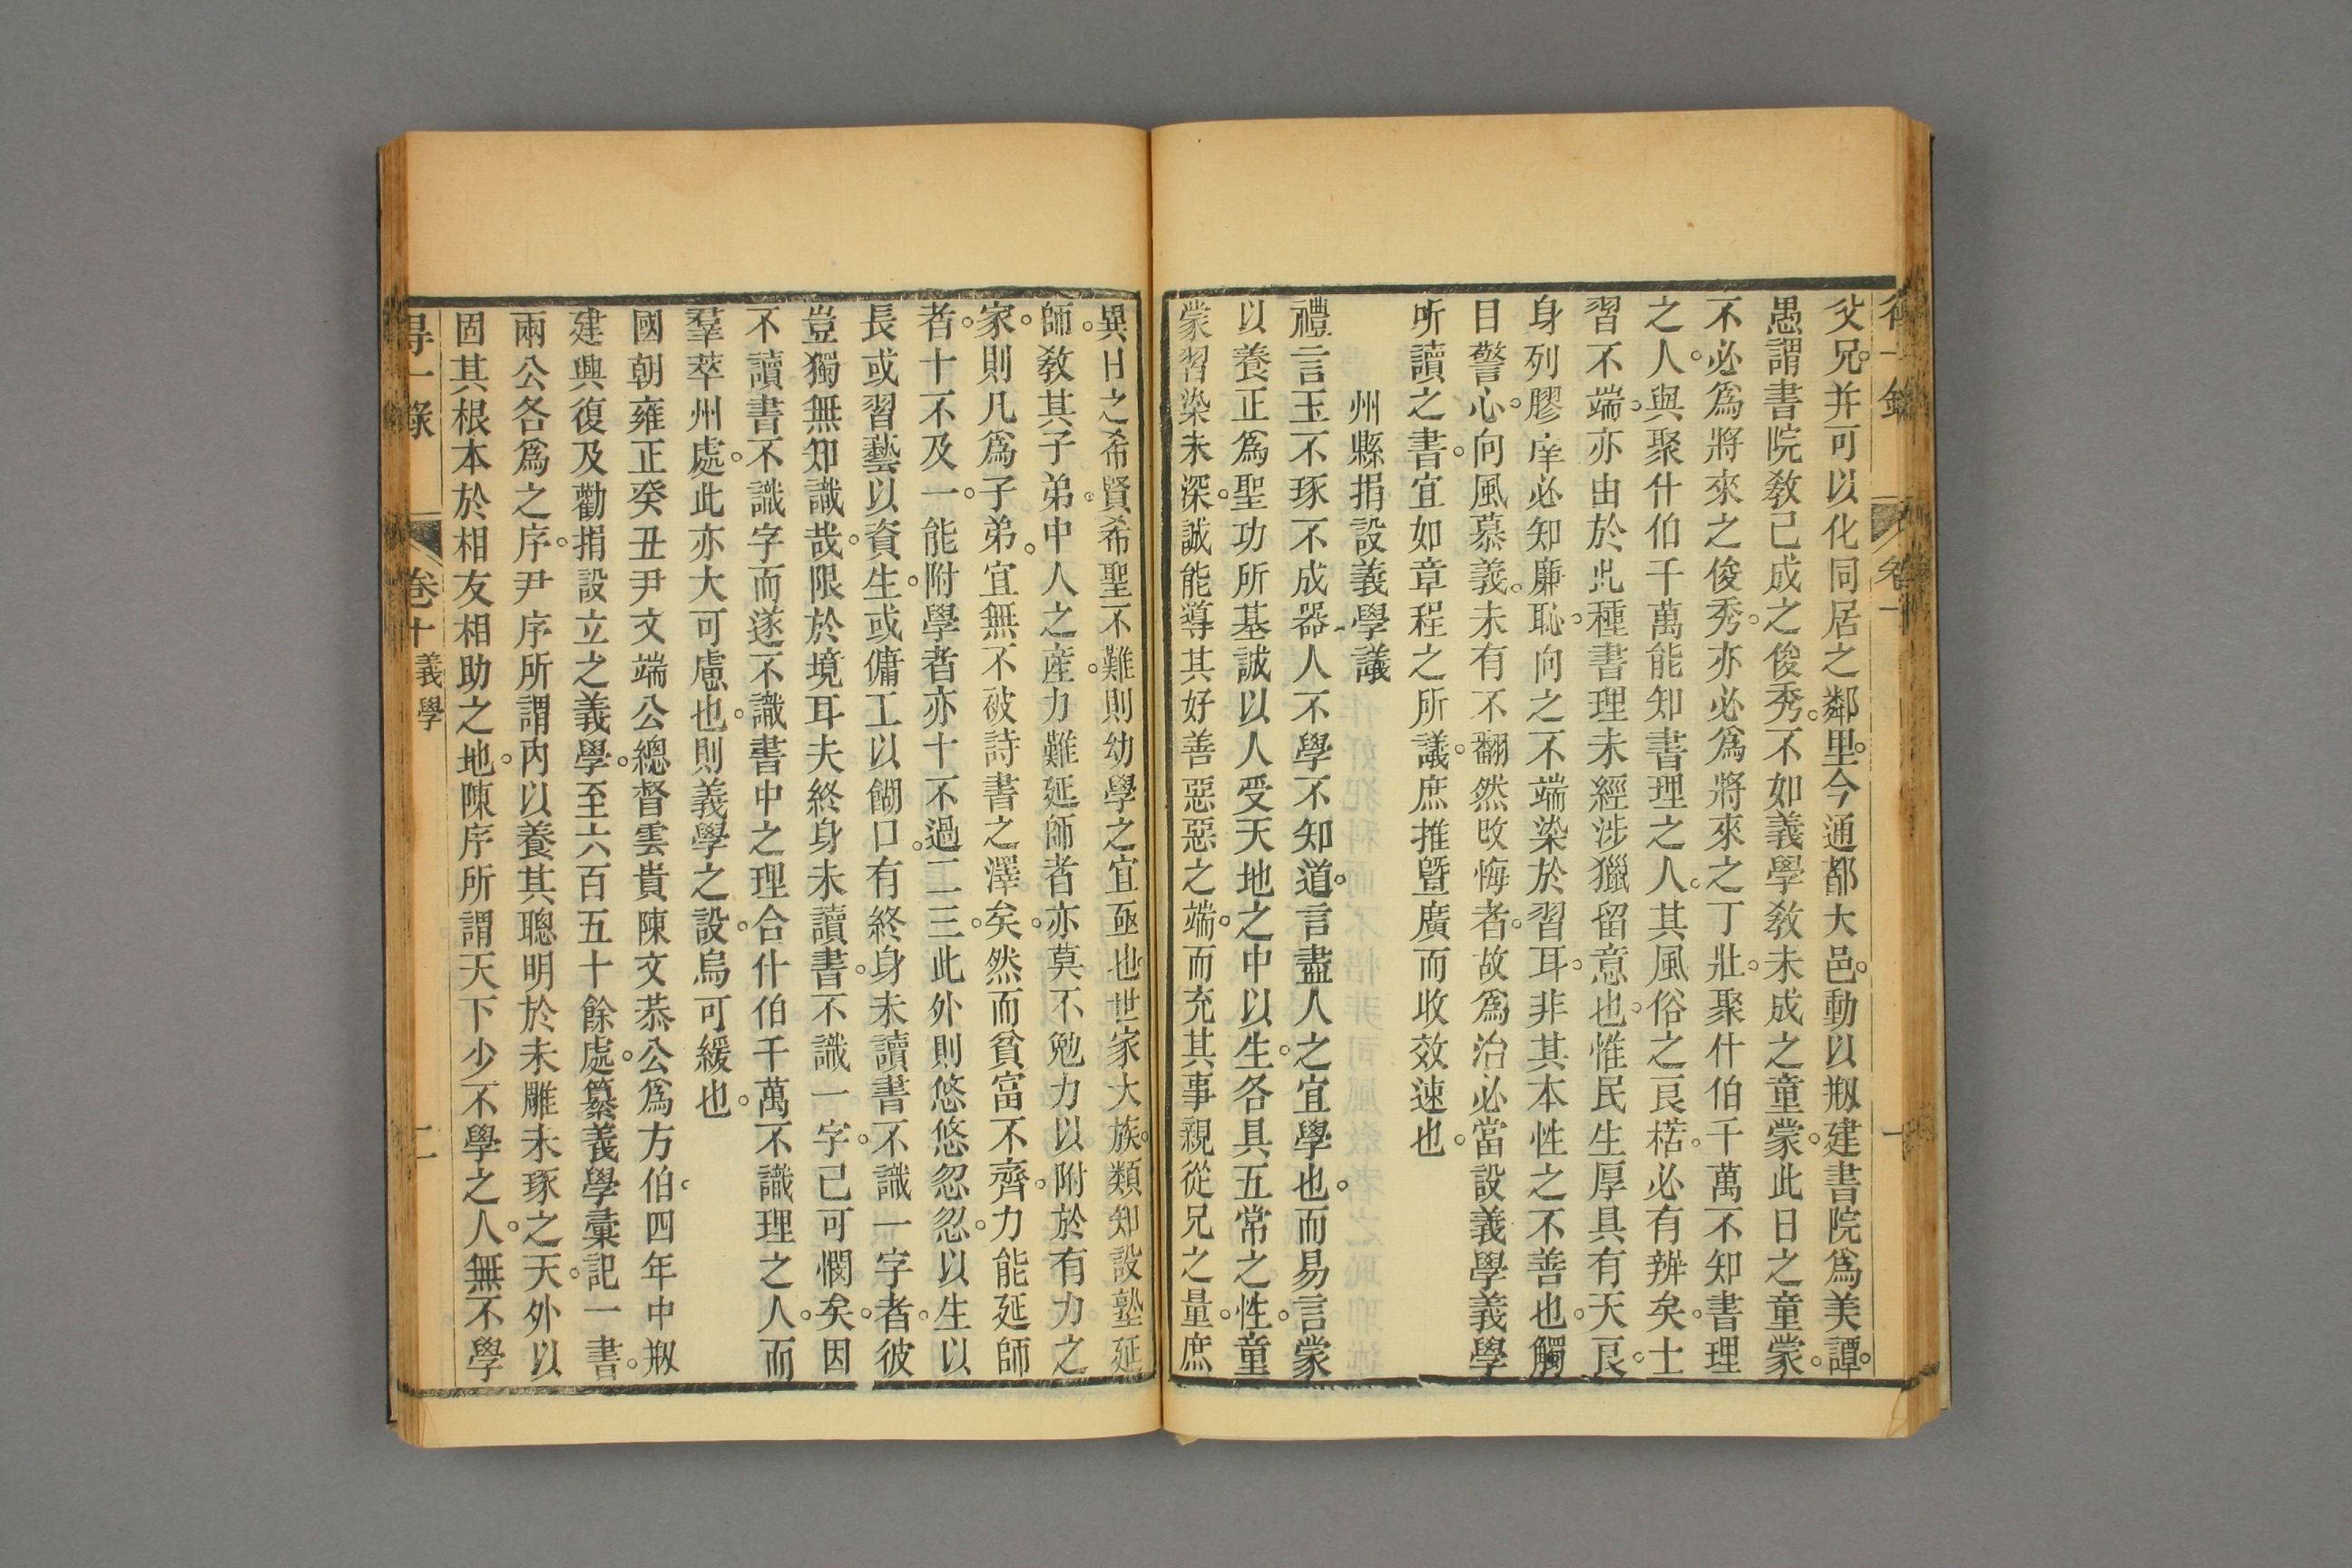 父兄。并可以化同居之鄰里。今通都大邑。動以剏建書院爲美譚。
愚謂書院敎已成之俊秀。不如義學敎未成之童蒙。此日之童蒙。
不必爲將來之俊秀。亦必爲將來之丁壯。聚什伯千萬不知書理
之人。與聚什伯千萬能知書理之人。其風俗之良楛。必有辨矣。士
習不端。亦由於此種書理未經涉獵留意也。惟民生厚具有天良。
身列膠庠必知廉恥。向之不端染於習耳。非其本性之不善也。觸
目警心。向風慕義。未有不翻然改悔者。故爲治必當設義學義學
所讀之書。宜如章程之所議。庶推暨廣而收效速也。
州縣捐設義學議
禮言玉不琢不成器。人不學不知道。言盡人之宜學也。而易言蒙
以養正爲聖功所基誠以人受天地之中以生。各具五常之性。童
蒙習染未深。誠能導其好善惡惡之端。而充其事親從兄之量。庶
異日之希賢希聖不難則幼學之宜亟也世家大族。類知設塾延
師。敎其子弟。中人之產。力難延師者亦莫不勉力以附於有力之
家。則凡爲子弟。宜無不被詩書之澤矣。然而貧富不齊。力能延師
者。十不及一。能附學者亦十不過二三。此外則悠悠忽忽。以生以
長或習藝以資生。或傭工以餬口。有終身未讀書不識一字者。彼
豈獨無知識哉。限於境耳夫終身未讀書。不識一字。已可憫矣。因
不讀書不識字而遂不識書中之理合什伯千萬不識理之人。而
羣萃州處。此亦大可慮也。則義學之設。烏可緩也。
國朝雍正癸丑尹文端公總督雲貴陳文恭公爲方伯。四年中剏
建興復及勸捐設立之義學。至六百五十餘處。纂義學彙記一書。
兩公各爲之序。尹序所謂內以養其聰明於未雕未琢之天。外以
固其根本於相友相助之地。陳序所謂天下少不學之人。無不學
得一錄
卷十
義學
二